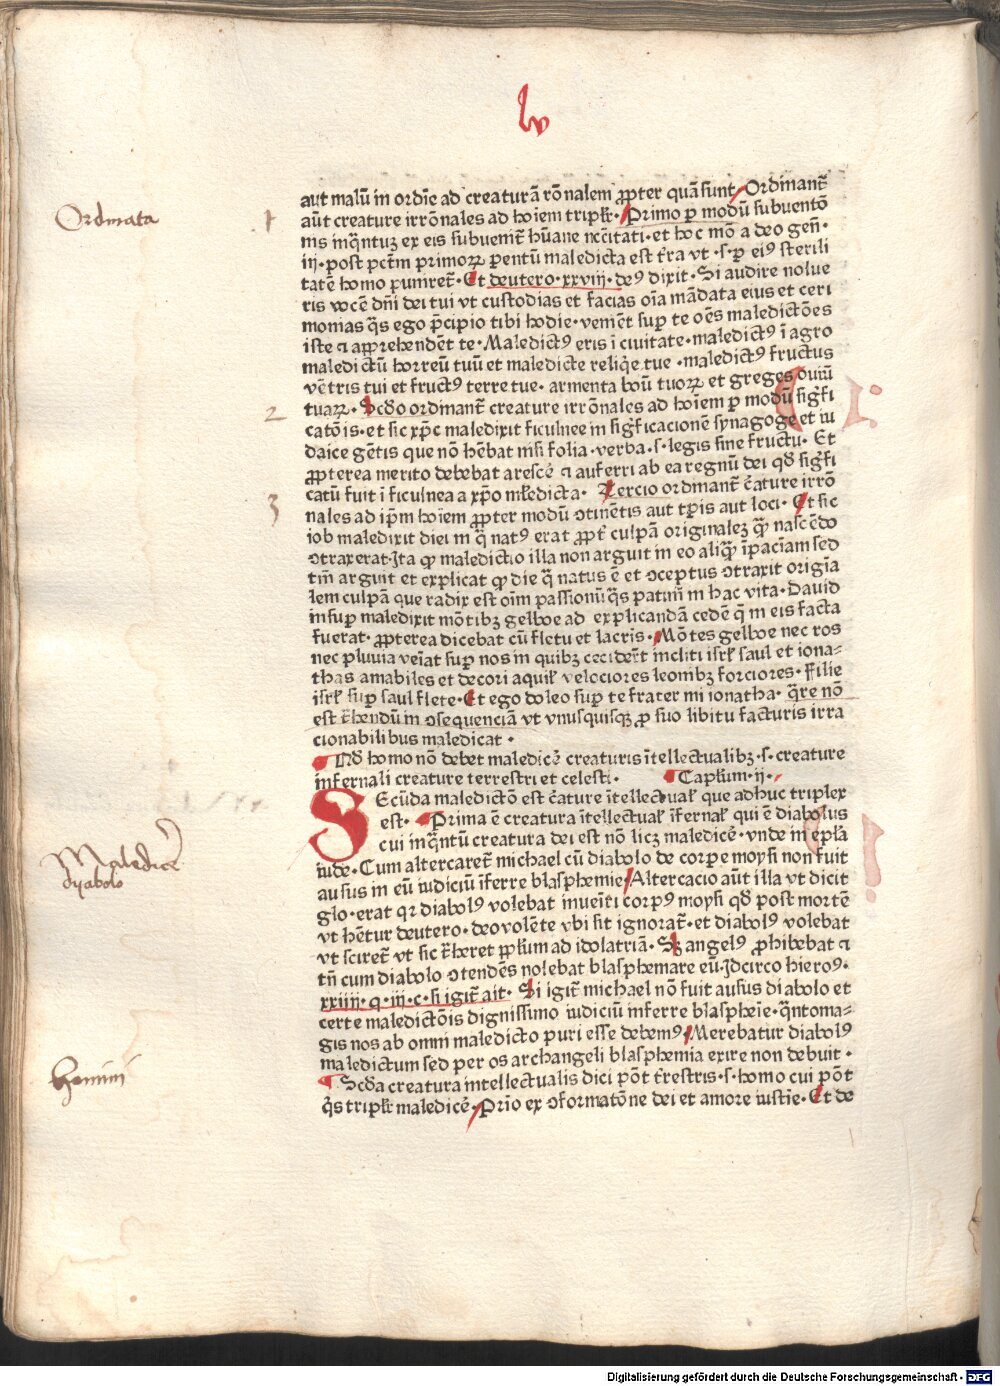 lv
aut malū in ordīe ad creaturā rōnalem ꝓpter quā sunt Ordinant̄
Ordinata
aūt creature irrōnales ad hoīem tripl̄r· Primo ꝑ modū subuentō
1
nis inq̄ntuꝫ ex eis subuenit̄ hūane nccītati· et hoc mō a deo gen̄·
iij· post pctm̄ primoꝝ parentū maledicta est t̄ra vt ·s· ꝑ eiꝰ sterili
tatē homo puniret̄· Et deutero· xxviij· deꝰ dixit· Si audire nolue
ris vocē dn̄i dei tui vt custodias et facias oīa mādata eius et ceri
monias q̄s ego p̄cipio tibi hodie· venient suꝑ te oēs maledictōes
iste ⁊ apprehendēt te· Maledictꝰ eris ī ciuitate· maledictꝰ ī agro
maledictū horreū tuū et maledicte reliq̄e tue ·maledictꝰ fructus
vētris tui et fructꝰ terre tue· armenta boū tuoꝝ et greges ouiū
tuaꝝ· Scd̄o ordinant̄ creature irrōnales ad hoīem ꝑ modū siḡfi
2
catōnis· et sic xp̄c maledixit ficulnee in siḡficacionē synagoge et iu
daice gētis que nō hēbat nisi folia· verba ·s· legis sine fructu· Et
ꝓpterea merito debebat arescē ⁊ auferri ab ea regnū dei qd̄ siḡfi
catū fuit ī ficulnea a xp̄o ml̄edicta· Tercio ordinant̄ c̄ature irrō
nales ad ip̄m hoīem ꝓpter modū ↄtinētis aut tꝑis aut loci· Et sic
3
iob maledixit diei in q̄ natꝰ erat ꝓpt̄ culpā originaleꝫ quā nascēdo
ↄtraxerat· Ita ꝙ maledictio illa non arguit in eo aliquā īpaciam sed
tm̄ arguit et explicat ꝙ die q̄ natus ē et ↄceptus ↄtraxit origīa
lem culpā que radix est oīm passionū q̄s patim̄ in hac vita· Dauid
insuꝑ maledixit mōtibꝫ gelboe ad explicandā cedē q̄ in eis facta
fuerat· ꝓpterea dicebat cū fletu et lacrīs· Mōtes gelboe nec ros
nec pluuia veīat suꝑ nos in quibꝫ cecider̄t incliti isrl̄ saul et iona⸗
thas amabiles et decori aquil̄ velociores leonibꝫ forciores· Filie
isrl̄ suꝑ saul flete· Et ego doleo suꝑ te frater mi ionatha· q̄re nō
est t̄hendū in ↄsequenciā vt vnusquisqꝫ ꝓ suo libitu facturis irra
cionabilibus maledicat·
Qd̄ homo nō debet maledicē creaturis ītellectualibꝫ ·s· creature
infernali creature terrestri et celesti· Capl̄um· ij·
Secūda maledictō est c̄ature ītellectual̄ que adhuc triplex
est· Prima ē creatura ītellectual̄ īfernal̄ qui ē diabolus
cui inq̄ntū creatura dei est nō licꝫ maledicē· vnde in epl̄a
iude· Cum altercaret̄ michael cū diabolo de corpe moysi non fuit
Maledicē
dyabolo
ausus in eū iudiciū īferre blasphemie Altercacio aūt illa vt dicit
glo· erat qꝛ diabolꝰ volebat īueīri corpꝰ moysi qd̄ post mortē
vt hētur deutero· deo volēte vbi sit ignorat̄· et diabolꝰ volebat
vt sciret̄ vt sic t̄heret ppl̄um ad idolatriā· Sꝫ angelꝰ ꝓhibebat ⁊
tn̄ cum diabolo ↄtendēs nolebat blasphemare eū· Idcirco hieroꝰ·
xxiiij· q· iij· c· si igit̄ ait· Si igit̄ michael nō fuit ausus diabolo et
certe maledictōis dignissimo iudiciū inferre blasphēie· q̄ntoma⸗
gis nos ab omni maledicto puri esse debemꝰ Merebatur diabolꝰ
maledictum sed per os archangeli blasphemia exire non debuit·
Scd̄a creatura intellectualis dici pōt t̄restris ·s· homo cui pōt
homini
q̄s tripl̄r maledicē· Prīo ex ↄformatōne dei et amore iustīe· Et de
Digitalisierung gefördert durch die Deutsche Forschungsgemeinschaft - DFG